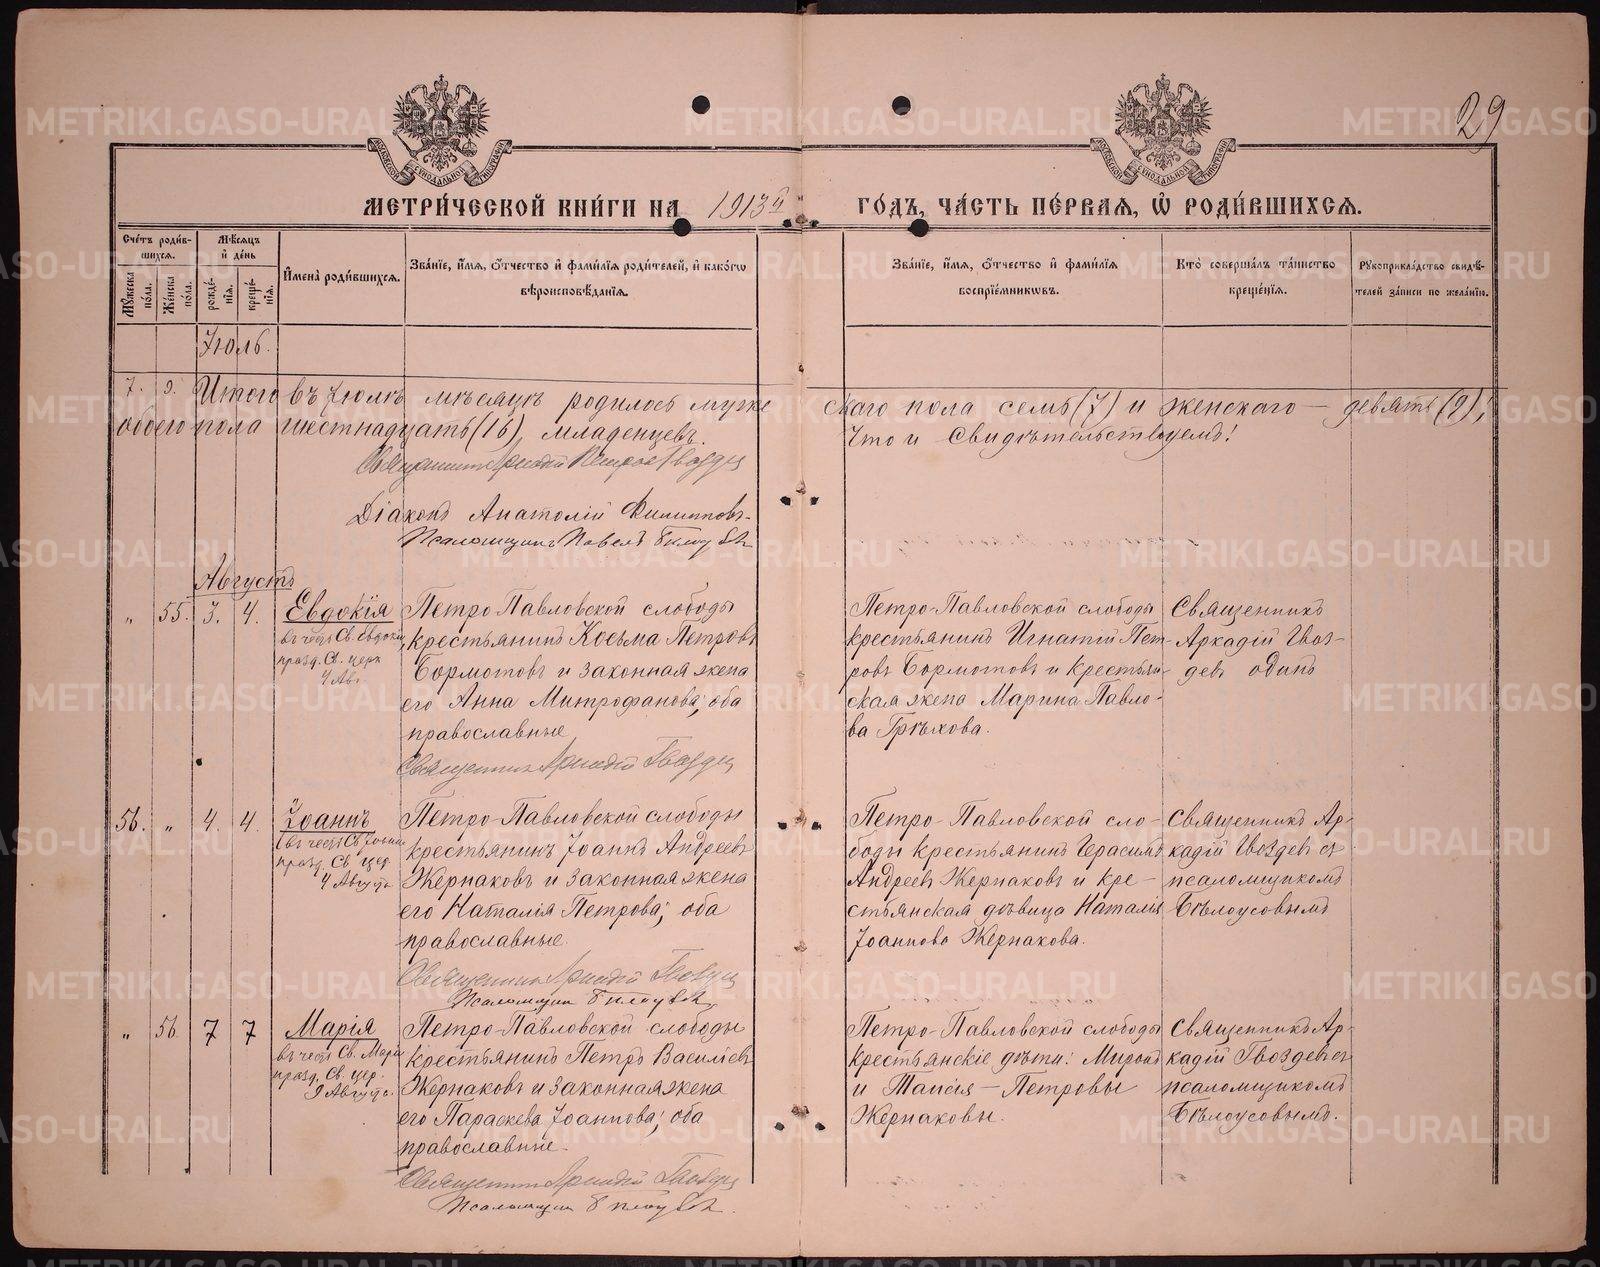 29
МЕТРИ́ЧЕСКОЙ КНИ́ГИ НА 1913й ГО́ДЪ, ЧА́СТЬ ПЕ́РВАЯ, Ѡ РОДИ́ВШИХСЯ.
Сче́тъ роди́вшихся.
Мꙋ́жеска по́ла.
Же́нска по́ла.
Мѣ́сяцъ и҆ де́нь
рожде́нїя.
креще́нїя.
И҆мена̀ роди́вшихся.
Зва́нїе, и҆́мя, ѻ҆́тчество и҆ фами́лїя роди́телей, и҆ како́гѡ
вѣроисповѣ́данїя.
Зва́нїе, и҆́мя, ѻ҆́тчество и҆ фами́лїя
воспрїе́мникѡвъ.
Кто̀ соверша́лъ та́инство
креще́нїя.
Рꙋкоприкла́дство свидѣ́-
телей за́писи по жела́нїю.
Іюль.
7. 9. Итого въ Іюлѣ мѣсяцѣ родилось муже ского пола семь (7) и женскаго — девять (9);
обоего пола шестнадцать (16) младенцевъ. Что и свидѣтельствуемъ!
Священникъ Аркадій Гвоздев
Діаконъ Анатолій Филипповъ
Псаломщикъ Павелъ Бѣлоусов
Августъ
" 55. 3. 4.
Евдокія
въ честь Св. Евдокіи,
празд. Св. церк
4 Авг.
Петро-Павловской слободы
крестьянинъ Косьма Петровъ
Бормотовъ и законная жена
его Анна Митрофанова; оба
православные
Священник Аркадій Гвоздев
Петро-Павловской слободы
крестьянинъ Игнатій Пет-
ровъ Бормотовъ и крестьян-
ская жена Марина Павло-
ва Грѣхова.
Священникъ
Аркадій Гвоз-
девъ одинъ
56. " 4. 4.
Іоаннъ
(въ честь Св. Іоанна
празд. Св. цер.
4 Августа
Петро-Павловской слободы
крестьянинъ Іоаннъ Андреевъ
Жернаковъ и законная жена
его Наталія Петрова; оба
православные.
Священник Аркадій Гвоздев
Псаломщик Бѣлоусов
Петро-Павловской сло-
боды крестьянинъ Герасимъ
Андреевъ Жернаковъ и кре-
стьянская дѣвица Наталія
Іоаннова Жернакова.
Священникъ Ар-
кадій Гвоздевъ съ
псаломщикомъ
Бѣлоусовымъ
" 56 7 7
Марія
въ честь Св. Маріи
празд. Св. цер.
9 Августа.
Петро-Павловской слободы
крестьянинъ Петръ Василіевъ
Жернаковъ и законная жена
его Параскева Іоаннова; оба
православные.
Священник Аркадій Гвоздев
Псаломщик Бѣлоусов.
Петро-Павловской слободы
крестьянскіе дѣти: Миронъ
и Таисія — Петровы
Жернаковы.
Священникъ Ар-
кадій Гвоздевъ съ
псаломщикомъ
Бѣлоусовымъ.
METRIKI.GASO-URAL.RU